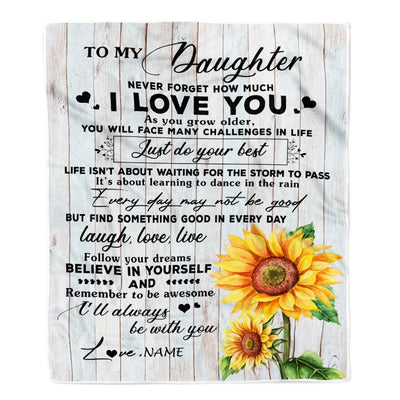 TO MY Daughter
NEVER FORGET HOW MUCH
I LOVE YOU
As you grow older,
YOU WILL FACE MANY CHALLENGES IN LIFE
Just do your best
LIFE ISN'T ABOUT WAITING FOR THE STORM TO PASS
It's about learning to dance in the rain
Every day may not be good
BUT FIND SOMETHING GOOD IN EVERY DAY
laugh, love, live
Follow your dreams
BELIEVE IN YOURSELF
AND
Remember to be awesome
I'll always
be with you
Love, NAME